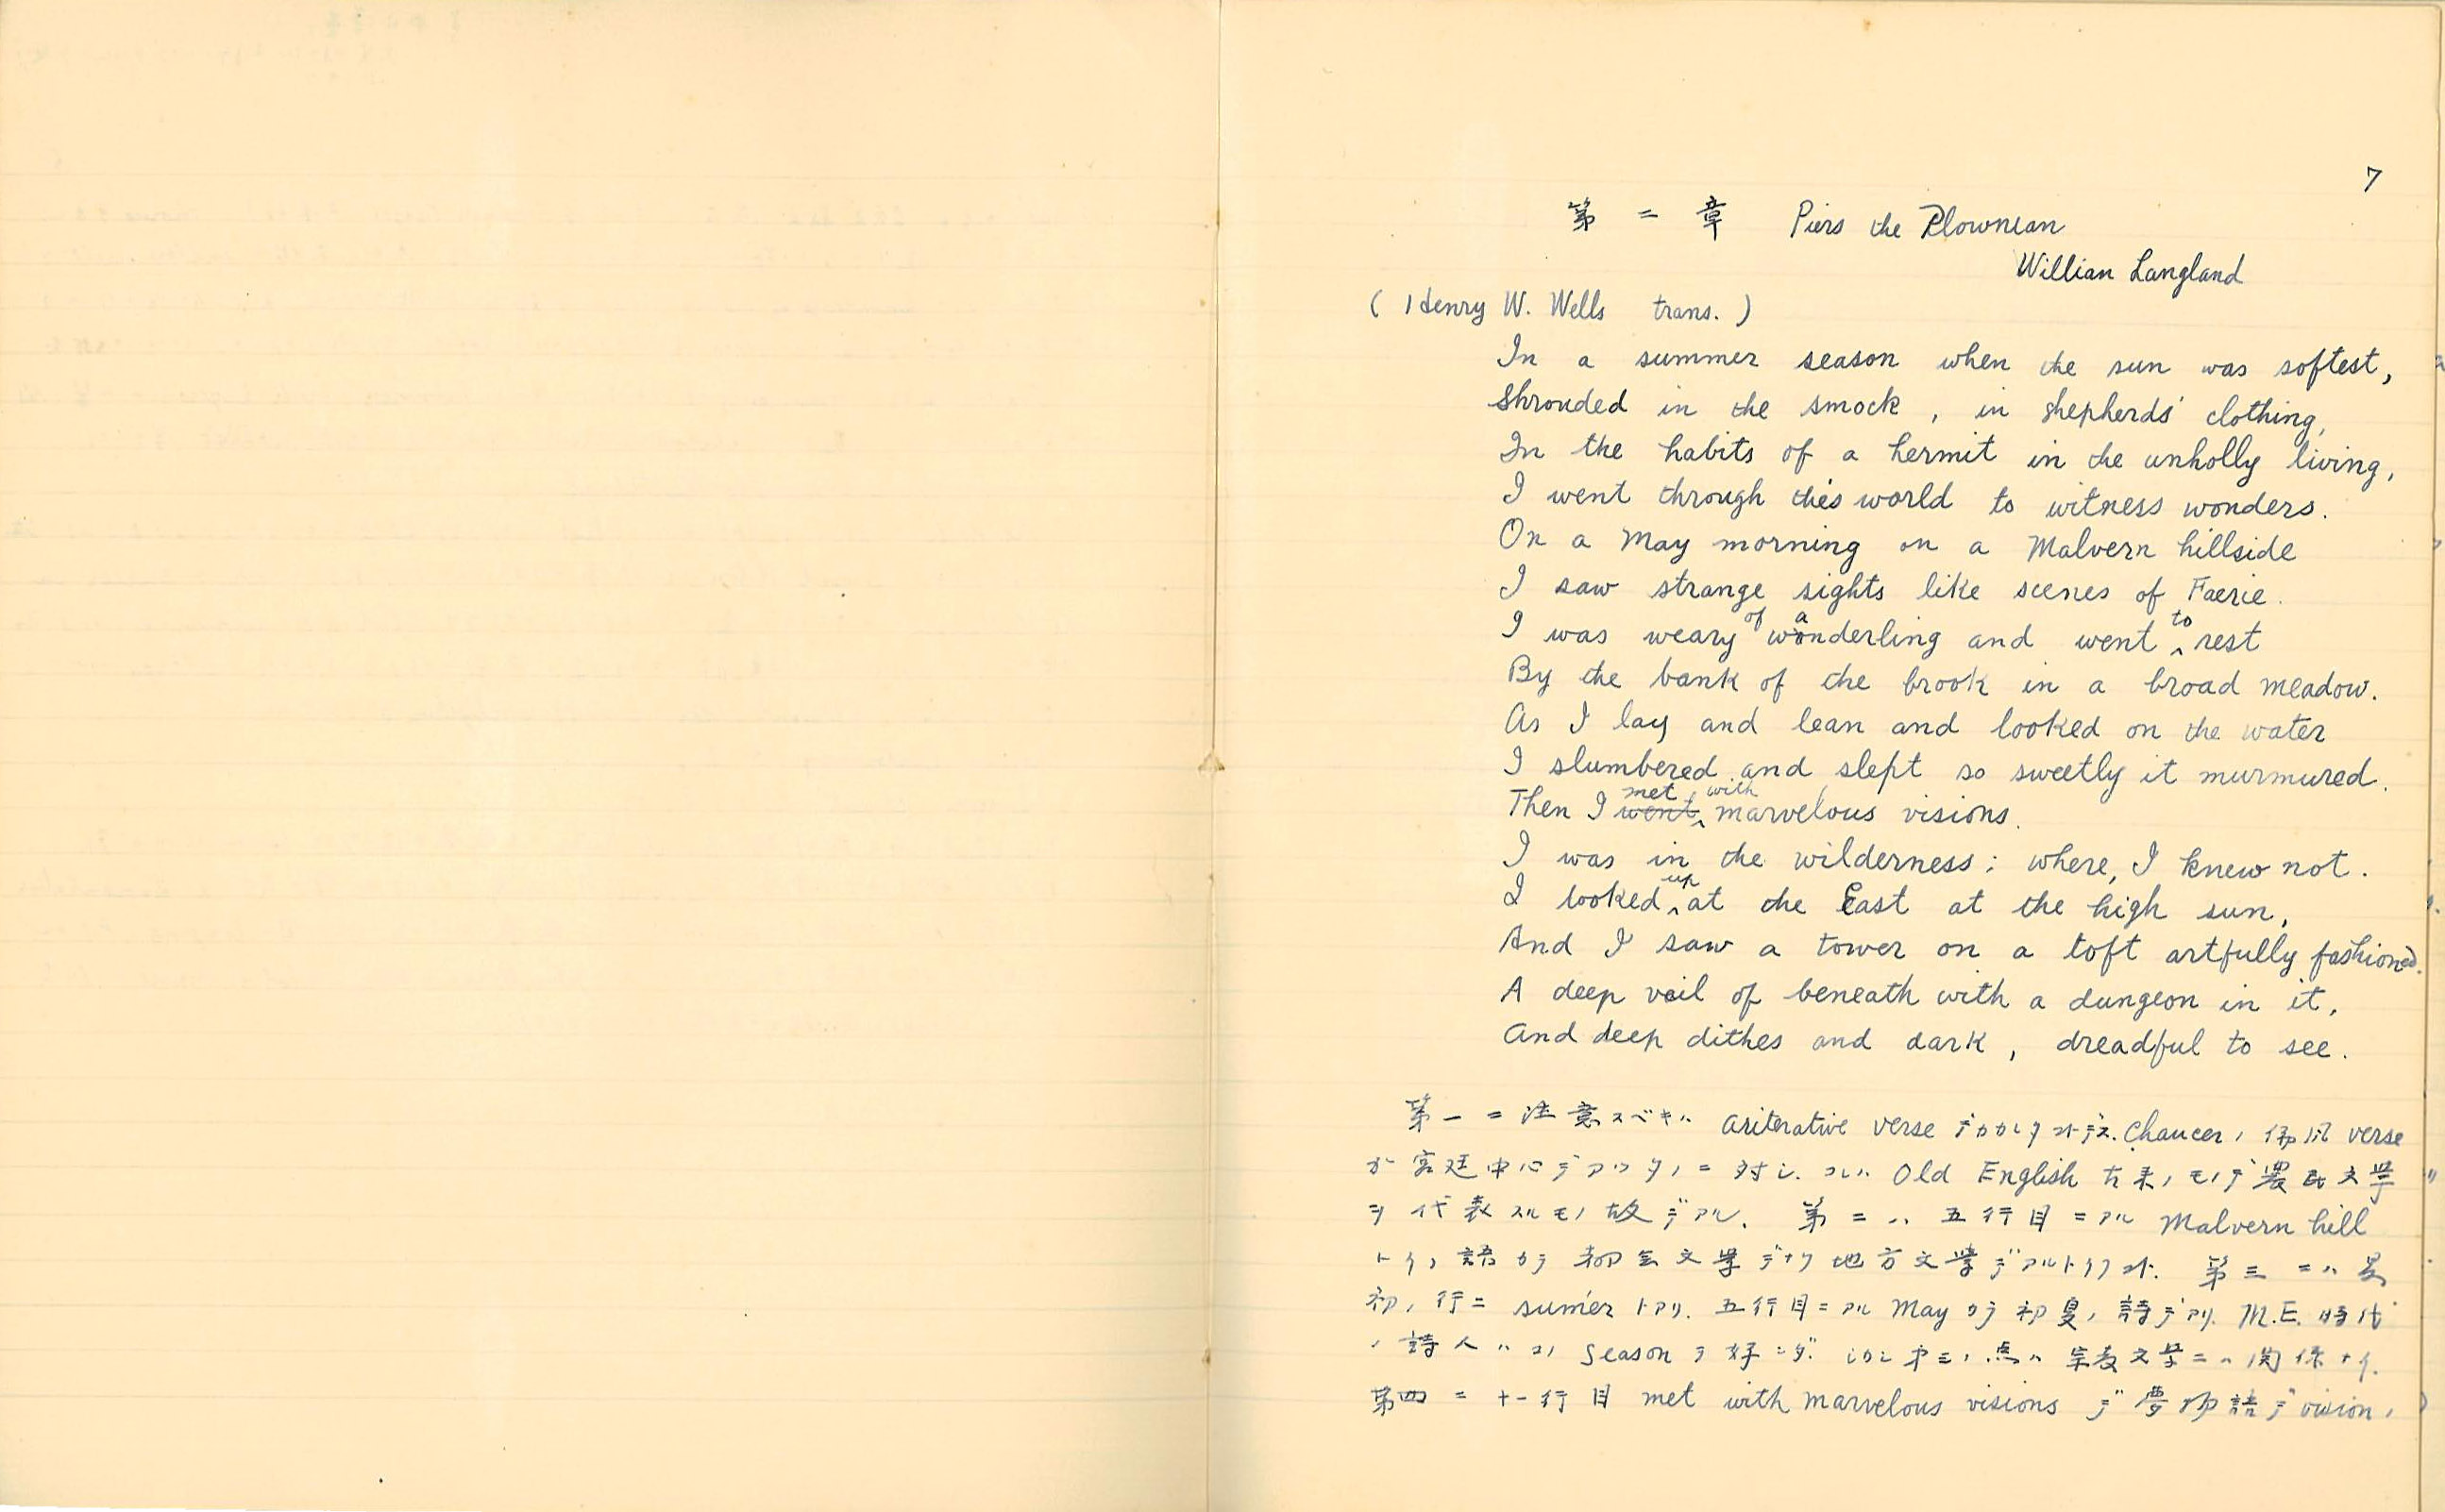 7
第二章 Piers the Plowman
Willian Langland
( Henry W. Wells trans. )
In a summer season when the sun was softest,
Shrouded in the smock, in shepherds' clothing,
In the habits of a hermit in the unholly living,
I went through this world to witness wonders.
On a May morning on a Malvern hillside
I saw strange sights like scenes of Faerie.
I was weary of wanderling and went to rest
By the bank of the brook in a broad meadow.
As I lay and lean and looked on the water
I slumbered and slept so sweetly it murmured.
Then I went met with marvelous visions.
I was in the wilderness; where, I knew not.
I looked up at the East at the high sun,
And I saw a tower on a toft artfully fashioned.
A deep vail of beneath with a dungeon in it,
And deep dithes and dark, dreadful to see.
第一ニ注意スベキハ ariterative verse デカカレタ Chaucer ノ佛風 verse
ガ宮廷中心デアッタノニ対シ、コレハ Old English 古来ノモノデ農民文學
ヲ代表スルモノ故デアル、第二ハ五行目ニアル Malvern hill
ト云フ語カラ都会文學デナク地方文學デアルト云フコト、第三ニハ最
初ノ行ニ sumer トアリ、五行目ニアル May カラ初夏ノ詩デアリ、M.E. 時代
ノ詩人ハコノ season ヲ好ンダ、シカシ第三ノ点ハ宗教文学ニハ関係ナイ、
第四ニ十一行目 met with marvelous visions デ夢物語デ vision ノ